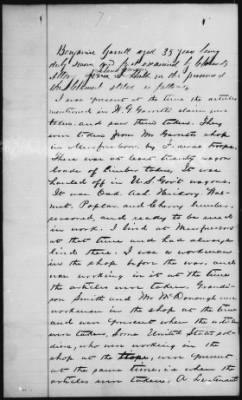 Benjamin Garrett aged 35 years being
duly sworn and first examined by Claimant's
Atty. in the presence
was present at the time the articles
mentioned in W. G. Garrett's claim were
taken and saw them taken. They
were taken from Mr Garrett's shop
in Murfreesboro by Federal troops.
There was at least twenty wagon
loads of timber taken. It was
hauled off in U.S. Gov't wagons.
It was Oak, and Hickory, Wal-
nut, Poplar, and Cherry timber,
seasoned, and ready to be used
in work. I lived at Murfreesboro
at that time and had always
lived there. I was a workman
in the shop before the war, and
was working in it at the time
the articles were taken. Grandi-
son Smith and Mr McDonough were
workmen in the shop at the time
and were present when the articles
were taken. Some United States sol-
diers, who were working in the
shop at the were present
at the same time when the
articles were taken. A Lieutenant